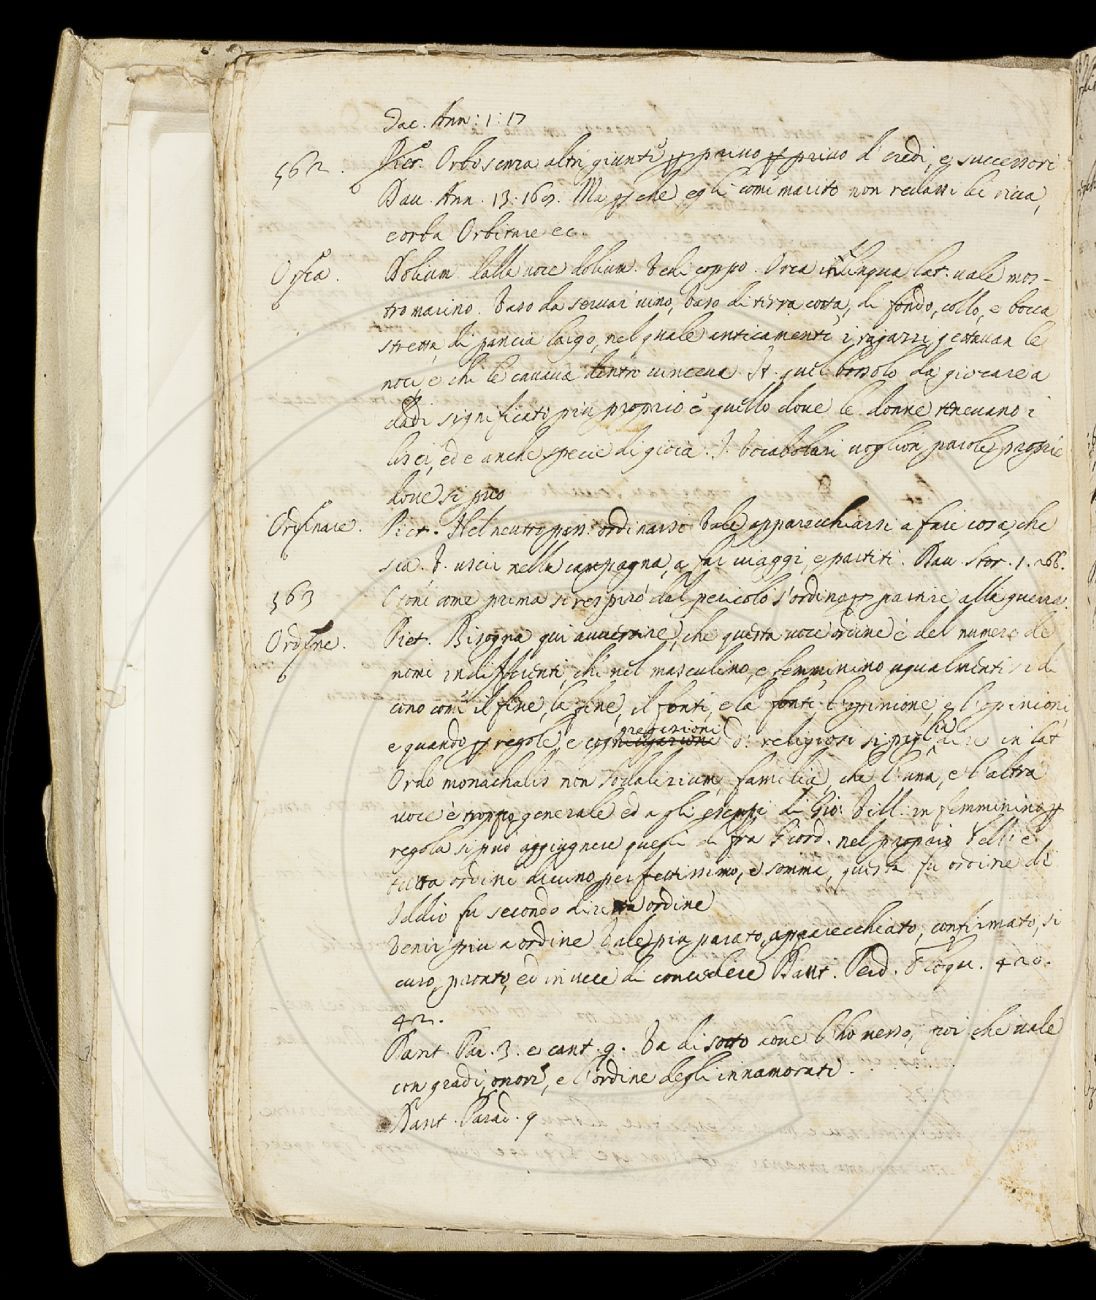 Dac. Ann: 1: 17
562. Piet. Orbo senza altri giunti per privo per privo d'eredi, e successori
Dau. Ann. 13. 169. Ma perche egli com marito non redassi le ricca,
e orba Orbitrare ec.
Orca. Dolium dalla uoce dolium. Vedi coppo. Orca in lingua lat. uale mos-
tro marino. Vaso da seruar uino, Vaso di terra cotta, di fondo, collo, e bocca
stretta, di pancia largo, nel quale anticamente i ragazzi gettauan le
noci, e chi le cauaua dentro uinceua. It. quel bossolo da giocare a
dadi significato piu proprio è quello doue le donne teneuano i
lisci, ed e anche specie di gioia. I Vocabolari uoglion parole proprie
doue si puo
Ordinare. Piet. Nel neutro pass. ordinarse Vale apparecchiarsi a fare cosa, che
sia. V. uscir nella campagna, a far uiaggi, e partiti. Dau. Stor. 1. 266.
563 Cioni come prima si respirò dal pericolo s'ordina per partire alla guerra.
Ordine. Piet. Bisogna qui auuertire, che questa uoce ordine è del numero de
nomi indifferenti, che nel masculino, e femminino ugualmenti si di
cono com' il fine, la fine, il fonti, e la fonti l'opinione, e l'opinioni
e quando per regole, e congregazioni di religiosi si piglia dice in lat
Ordo monachalis non Sodalitium, familia, che l'una, e l'altra
uoce è troppo generale ed agli esempi di Gio: Vill. in femminino per
regola si può aggiugnere quegli di fra Giord. nel proprio Vell. e
tutta ordine diuino perfettissimo, e somma, questa fu ordine di
Iddio fu secondo diritta ordine
Venir piu a ordine Vale piu parato, apparecchiato, confirmato, si
curo, pronto, ed in uece di concedere Dant. 420.
42.
Dant. Par. 3. e cant. 9. Va di sotto doue l'ho messo, poi che uale
con gradi, onori, e l'ordine degli innamorati.
Dant. Parad. 9